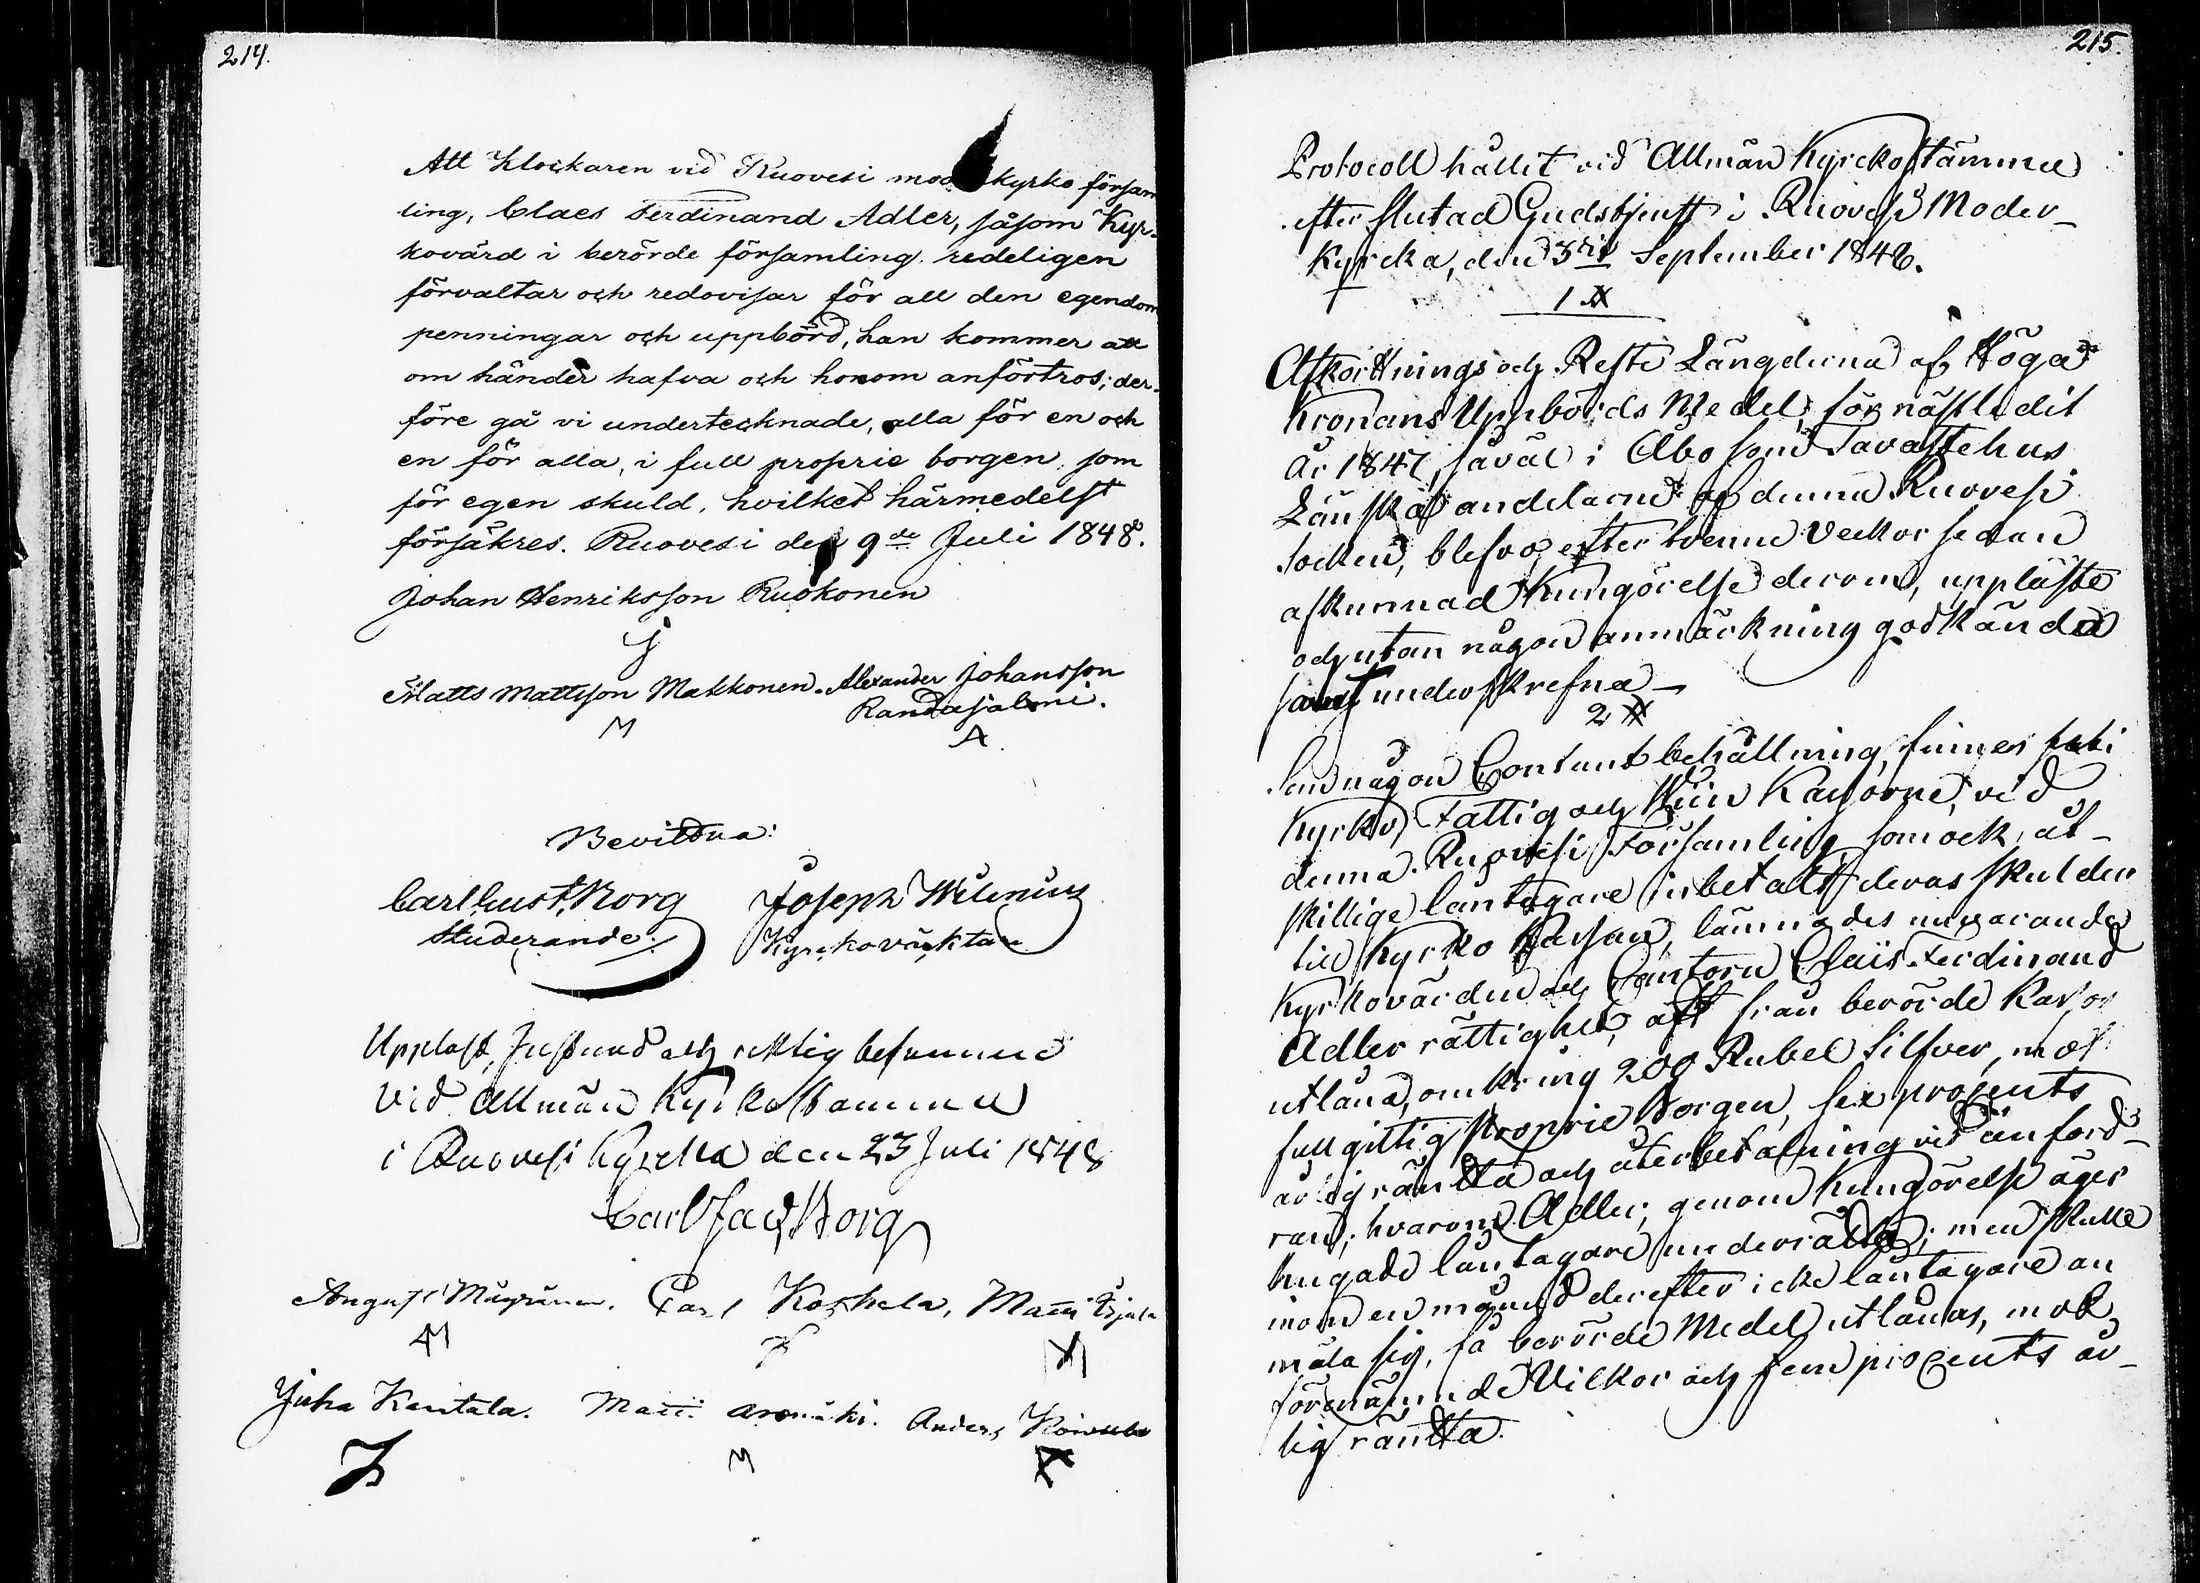 214.
Att Klockaren vid Ruovesi mod kyrko försam
ling, Claes Ferdinand Adler, såsom Kyr-
kovärd i berörde församling redeligen
förvaltar och redovisar för all den egendom
penningar och uppbörd, han kommer att
om händer hafva och honom anförtros; der-
före gå vi undertecknade, alla för en och
en för alla, i full proprie borgen som
för egen skuld, hvilket härmedelst
försäkres. Ruovesi den 9de Juli 1848.
Johan Henriksson Ruokonen
J
Matts Mattsson Makkonen. Alexander Johansson
Randajalmi.
M A.
Bevittna:
Carl Gust. Borg Joseph Wilenius
Studerande. Kyrckoväcktare
Uppläst, Justerad och riktig befunnen
vid Allmän Kyrkostämma
i Ruovesi Kyrcka den 23 Juli 1848
Carl Jac. Borg
August Carl Koskela, Matti
AM
Juha Kantala. Matti Anders
M
215.
Protocoll hållit vid Allmän Kyrckostämma
efter slutad Gudstjenst i Ruovesi Moder-
Kyrcka, den 3die September 1848.
1 §
Afkortnings och Reste Längderna af Höga
Kronans Uppbörds Medel, för nästledit
år 1847, såväl i Åbo som Tavastehus
Länska andelarne af denna Ruovesi
Socken, blefvo, efter tvenne veckor sedan
afkunnad Kungörelse derom, uppläste
och utan någon anmärkning godkända
samt underskrefna —
2 §
Som någon Contant behållning finnes uti
Kyrko, Fattig och Kassorne, vid
denna Ruovesi Församling, som ock åt-
skillige låntagare inbetalt deras skulder
till Kyrko Kassan, lämnades nuvarande
Kyrkovärden och Cantorn Claës Ferdinand
Adler rättighet, att från berörde Kassor
utlåna, omkring 200 Rubel Silfver, mot
fullgiltig proprie Borgen, sex procents
årlig räntta och återbetalning vid anford-
ran; hvarom Adler, genom Kungörelse äger
hugade låntagare underrätta; men skulle
inom en månad derefter icke låntagare an
mäla sig, få berörde Medel utlånas, mot
förenämnde Vilkor och fem procents år-
lig räntta.